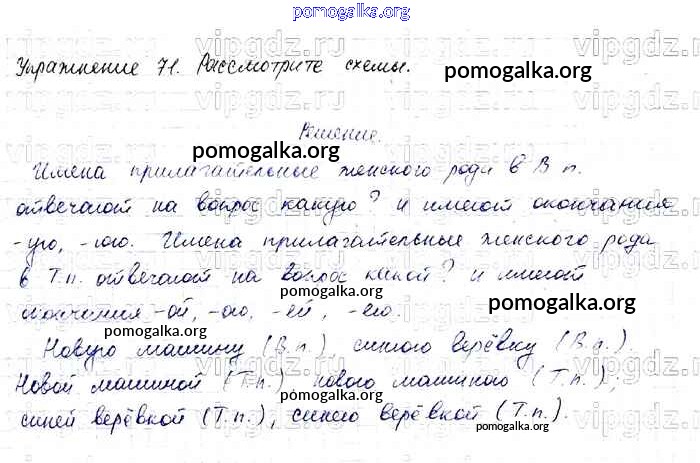 pomogalka.org
Упражнение 71. Рассмотрите схемы.
pomogalka.org
Решение.
pomogalka.org
Имена прилагательные женского рода в В п.
отвечают на вопрос какую? и имеют окончания
-ую, -юю. Имена прилагательные женского рода
pomogalka.org
в Т.п. отвечают на вопрос какой? и имеют
pomogalka.org
окончания -ой, -ою, -ей, -ею.
pomogalka.org
pomogalka.org
Новую машину (В.п.), синюю верёвку (В.п.).
Новой машиной (Т.п.) новою машиною (Т.п.),
pomogalka.org
синей верёвкой (Т.п.), синею верёвкой (Т.п.).
pomogalka.org
vipgdz.ru